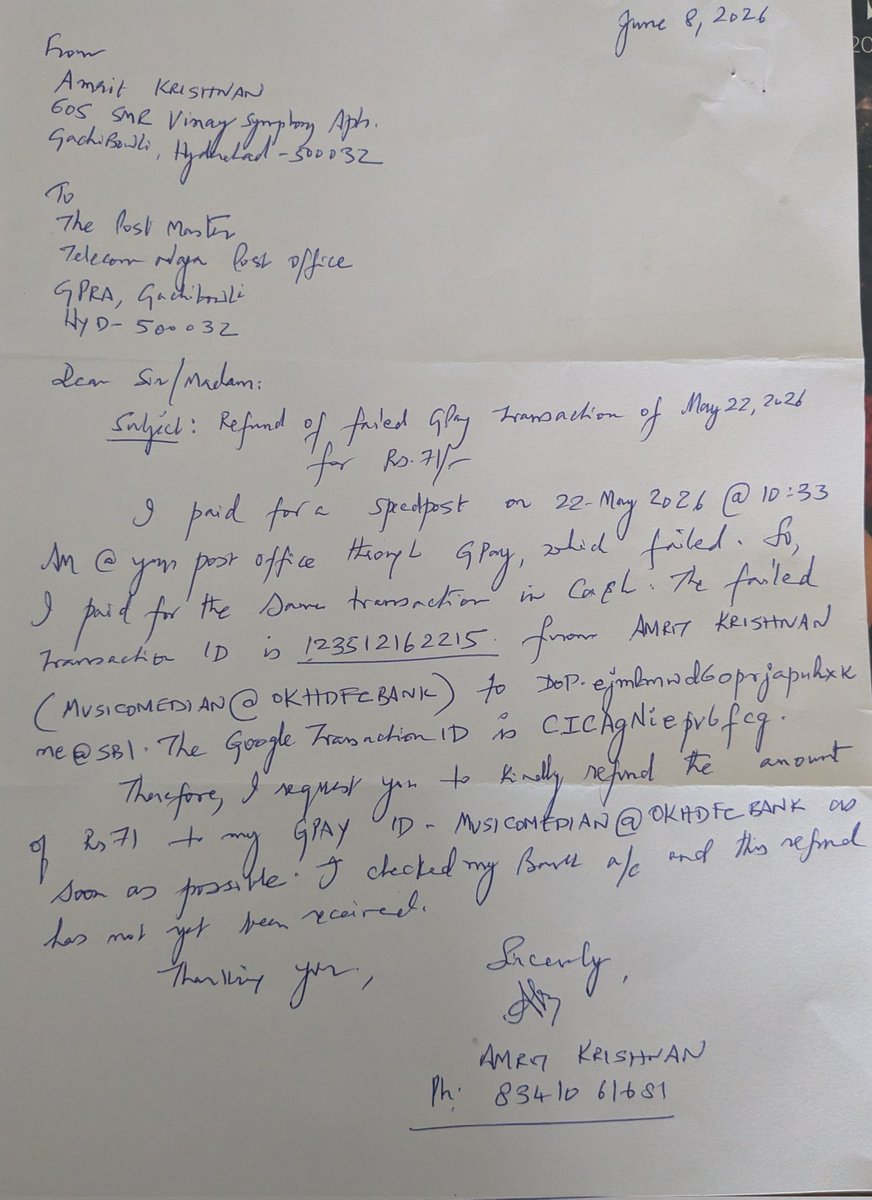 June 8, 2026
From
Amrit KRISHNAN
605 SMR Vinay Symphony Apts.
GachiBowli, Hyderabad - 500032
To
The Post Master
Telecom Nagar Post Office
GPRA, Gachibowli
HYD - 500032
Dear Sir/Madam:
Subject: Refund of failed GPay Transaction of May 22, 2026
for Rs. 71/-
I paid for a speedpost on 22-May 2026 @ 10:33
AM @ your post office through GPay, which failed. So,
I paid for the same transaction in Cash. The failed
Transaction ID is 123512162215 from AMRIT KRISHNAN
(MUSICOMEDIAN@OKHDFCBANK) to DOP.
me@SBI. The Google Transaction ID is CICAgNiepv6fcg.
Therefore, I request you to kindly refund the amount
of Rs 71 to my GPAY ID - MUSICOMEDIAN@OKHDFCBANK as
soon as possible. I checked my Bank a/c and this refund
has not yet been received.
Thanking you,
Sincerely,
AMRIT KRISHNAN
Ph: 83410 61681